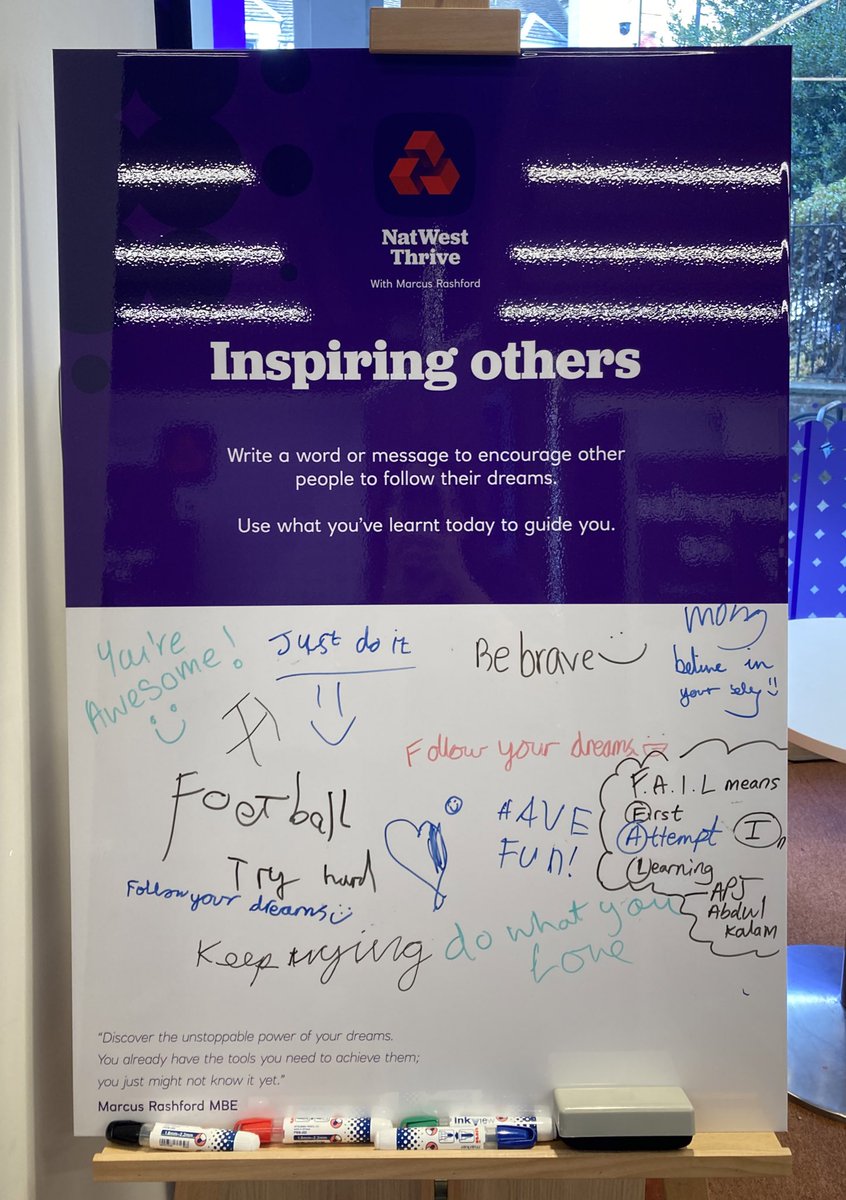 NatWest
Thrive
With Marcus Rashford
Inspiring others
Write a word or message to encourage other
people to follow their dreams.
Use what you've learnt today to guide you.
You're
Awesome!
Just do it
Be brave
believe in
your self
Follow your dreams
Football
HAVE
FUN!
F.A.I.L means
First
Attempt In
Learning
APJ
Abdul
Kalam
Try hard
Follow your dreams
Keep trying
do what you
Love
"Discover the unstoppable power of your dreams.
You already have the tools you need to achieve them;
you just might not know it yet."
Marcus Rashford MBE
Inkview